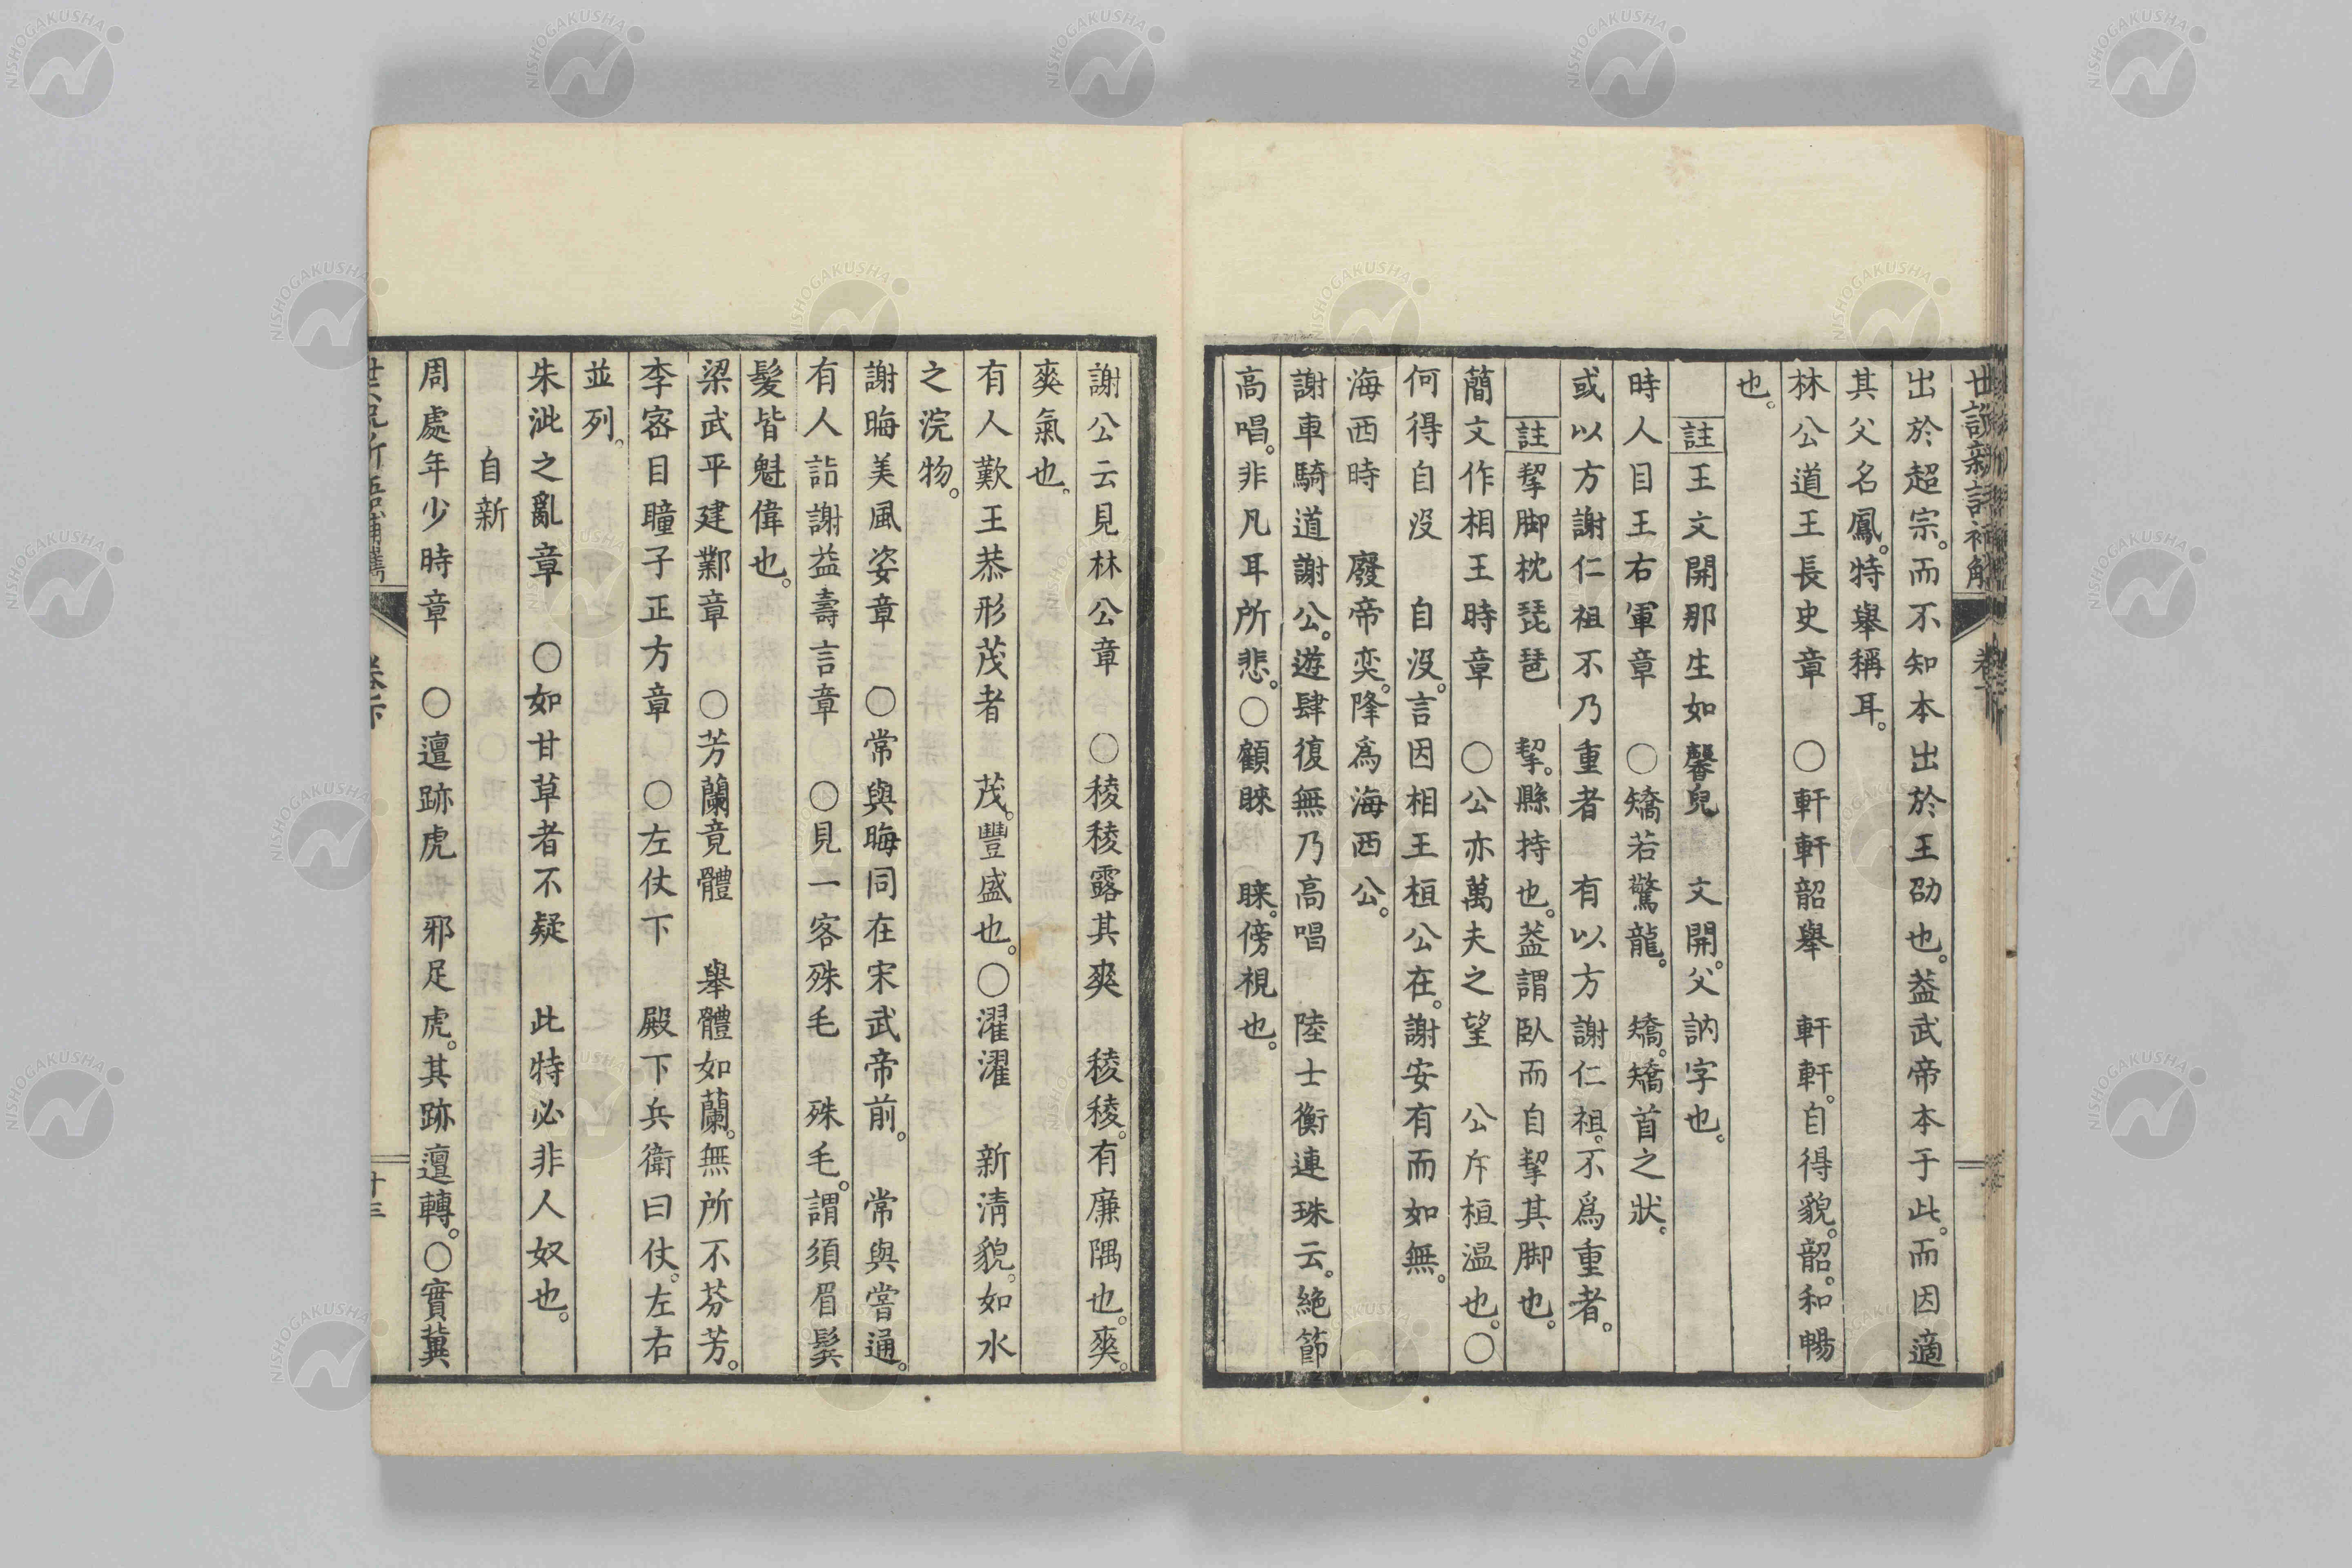 出於超宗。而不知本出於王劭也。葢武帝本于此。而因適
其父名鳳。特舉稱耳。
林公道王長史章　〇軒軒韶舉　軒軒。自得貌。韶。和暢
也。
註王文開那生如馨兒　文開。父訥字也。
時人目王右軍章　〇矯若驚龍。　矯。矯首之狀。
或以方謝仁祖不乃重者　有以方謝仁祖。不爲重者。
註挈脚枕琵琶　挈。縣持也。葢謂臥而自挈其脚也。
簡文作相王時章　〇公亦萬夫之望　公斥桓温也。〇
何得自没　自没。言因相王桓公在。謝安有而如無。
海西時　廢帝奕。降爲海西公。
謝車騎道謝公。遊肆復無乃高唱　陸士衡連珠云。絶節
高唱。非凡耳所悲。〇顧睞　睞。傍視也。
謝公云見林公章　〇稜稜露其爽　稜稜。有廉隅也。爽。
爽氣也。
有人歎王恭形茂者　茂。豐盛也。〇濯濯　新淸貌。如水
之浣物。
謝晦美風姿章　〇常與晦同在宋武帝前。　常與嘗通。
有人詣謝益壽言章　〇見一客殊毛　殊毛。謂須眉鬂
髮皆魁偉也。
梁武平建鄴章　〇芳蘭竟體　舉體如蘭。無所不芬芳。
李密目瞳子正方章　〇左仗下　殿下兵衛曰仗。左右
並列。
朱泚之亂章　〇如甘草者不疑　此特必非人奴也。
自新
周處年少時章　〇邅跡虎　邪足虎。其跡邅轉。〇實冀
卷下
十三
NISHOGAKUSHA